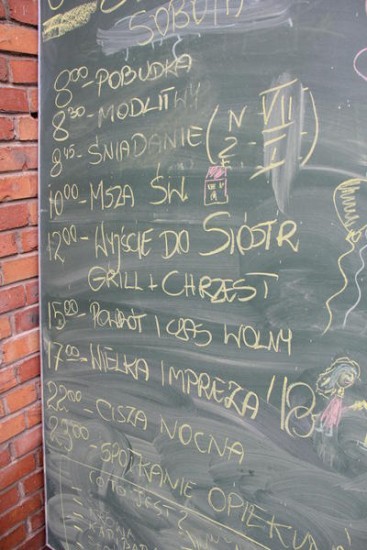 SOBOTA
8:00 - POBUDKA
8:30 - MODLITWY
8:45 - ŚNIADANIE (N - VII
Z - I)
10:00 - MSZA ŚW.
12:00 - WYJŚCIE DO SIÓSTR
GRILL + CHRZEST
15:00 - POWRÓT I CZAS WOLNY
17:00 - WIELKA IMPREZA! 18
22:00 - CISZA NOCNA
23:00 - SPOTKANIE OPIEKUNÓW
(CO TO JEST?